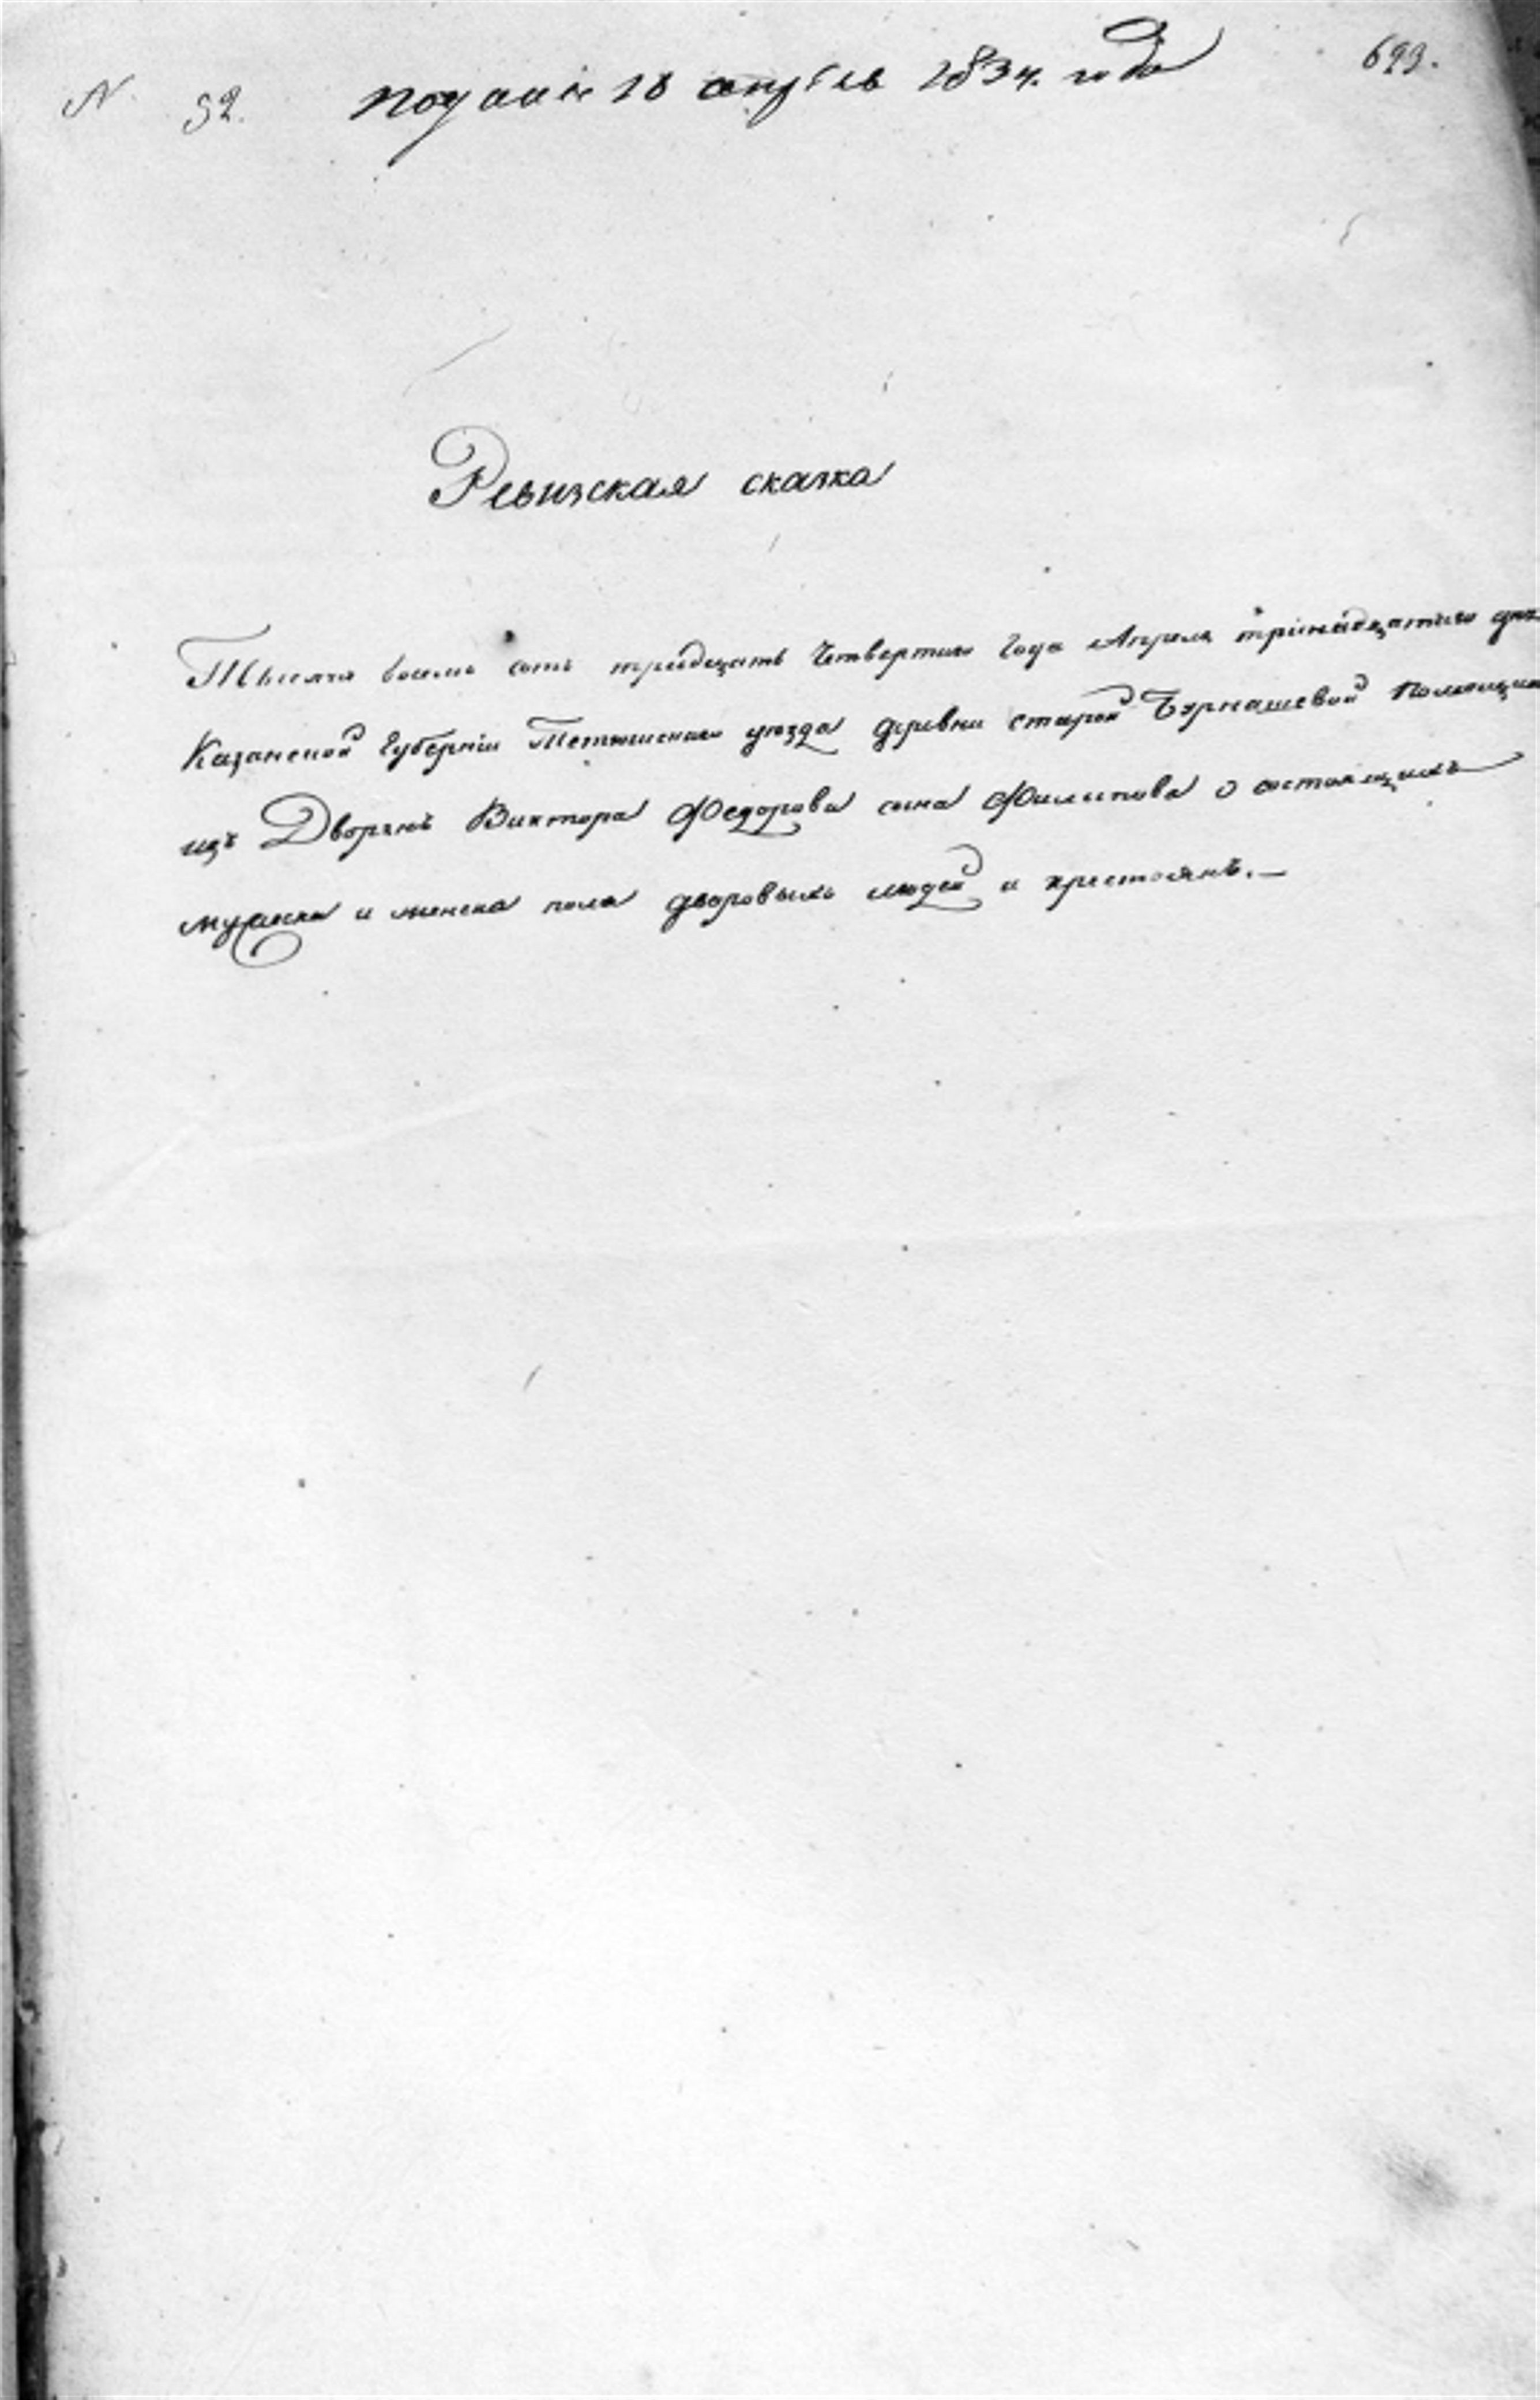 N 92. подана 18 апреля 1834. года 693.
Ревизская сказка
Тысяча восемь сотъ тридцать Четвертаго Года Апреля тринадцатаго дня
Казанской Губерніи Тетюшскаго уезда деревни старой Бурнашевой Помещика
изъ Дворянъ Виктора Федорова сына Филипова о состоящихъ
мужска и женска пола дворовыхъ людей и крестьянъ.—